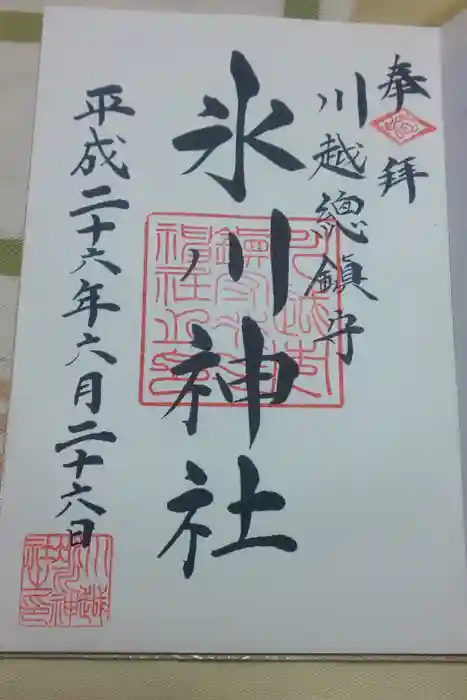 奉拝
川越總鎮守
氷川神社
平成二十六年六月二十六日